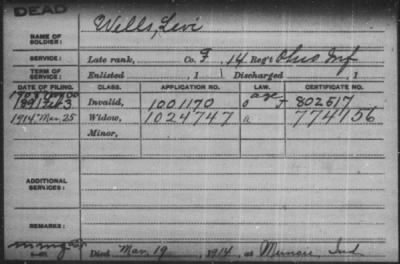 DEAD
NAME OF SOLDIER: Wells, Levi
SERVICE: Late rank, Co. F, 14 Reg't Ohio Inf
TERM OF SERVICE: Enlisted , 1 Discharged , 1
DATE OF FILING. CLASS. APPLICATION NO. LAW. CERTIFICATE NO.
1891 Feb 3 Invalid, 1001170 802617
1914 Mar. 25 Widow, 1024747 774756
Minor,
ADDITIONAL SERVICES:
REMARKS:
Died Mar. 19, 1914, at Muncie, Ind